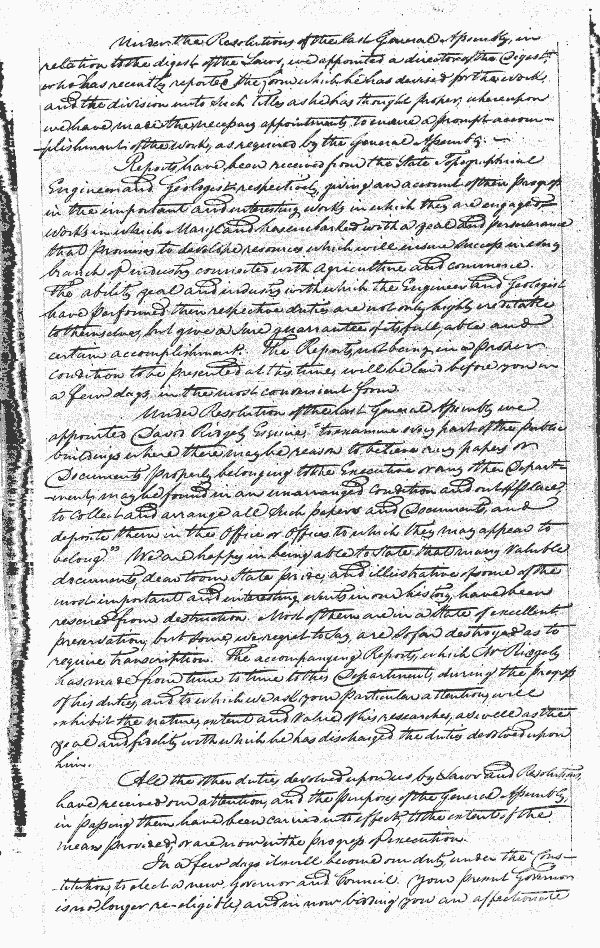 Under the Resolutions of the last General Assembly, in
relation to the digest of the Laws, we appointed a director of the Digest,
who has recently reported the form which he has devised for the work,
and the division into such titles as he has thought proper, whereupon
we have made the necessary appointments to ensure a prompt accom-
plishment of the work, as required by the General Assembly. —
Reports have been received from the State Topographical
Engineer and Geologist, respectively, giving an account of their progress
in the important and interesting works in which they are engaged —
works in which Maryland has embarked with a zeal and perseverance
that promises to develope resources which will ensure success in every
branch of industry connected with agriculture and commerce.
The ability, zeal and industry with which the Engineer and Geologist
have performed their respective duties are not only highly creditable
to themselves, but give a sure guarrantee of its full, able and
certain accomplishment. The Reports, not being in a proper
condition to be presented at this time, will be laid before you in
a few days, in the most convenient form.
Under Resolution of the last General Assembly we
appointed David Ridgely Esquire, "to examine every part of the public
buildings where there may be reason to believe any papers or
Documents properly belonging to the Executive or any other Depart-
ment, may be found in an unarranged condition and out of place
to collect and arrange all such papers and Documents, and
deposite them in the Office or Offices to which they may appear to
belong." We are happy in being able to state that many valuable
documents, dear to our State pride, and illustrative of some of the
most important and interesting events in our history, have been
rescued from destruction. Most of them are in a state of excellent
preservation, but some, we regret to say, are so far destroyed as to
require transcription. The accompanying Reports, which Mr Ridgely
has made from time to time to this Department, during the progress
of his duties, and to which we ask your particular attention, will
exhibit the nature, extent and value of his researches, as well as the
zeal and fidelity with which he has discharged the duties devolved upon
him.
All the other duties devolved upon us by Laws and Resolutions,
have received our attention, and the purposes of the General Assembly,
in passing them, have been carried into effect, to the extent of the
means provided, or are now in the progress of execution.
In a few days it will become our duty, under the Cons-
titution, to elect a new Governor and Council. Your present Governor
is no longer re-eligible, and in now bidding you an affectionate